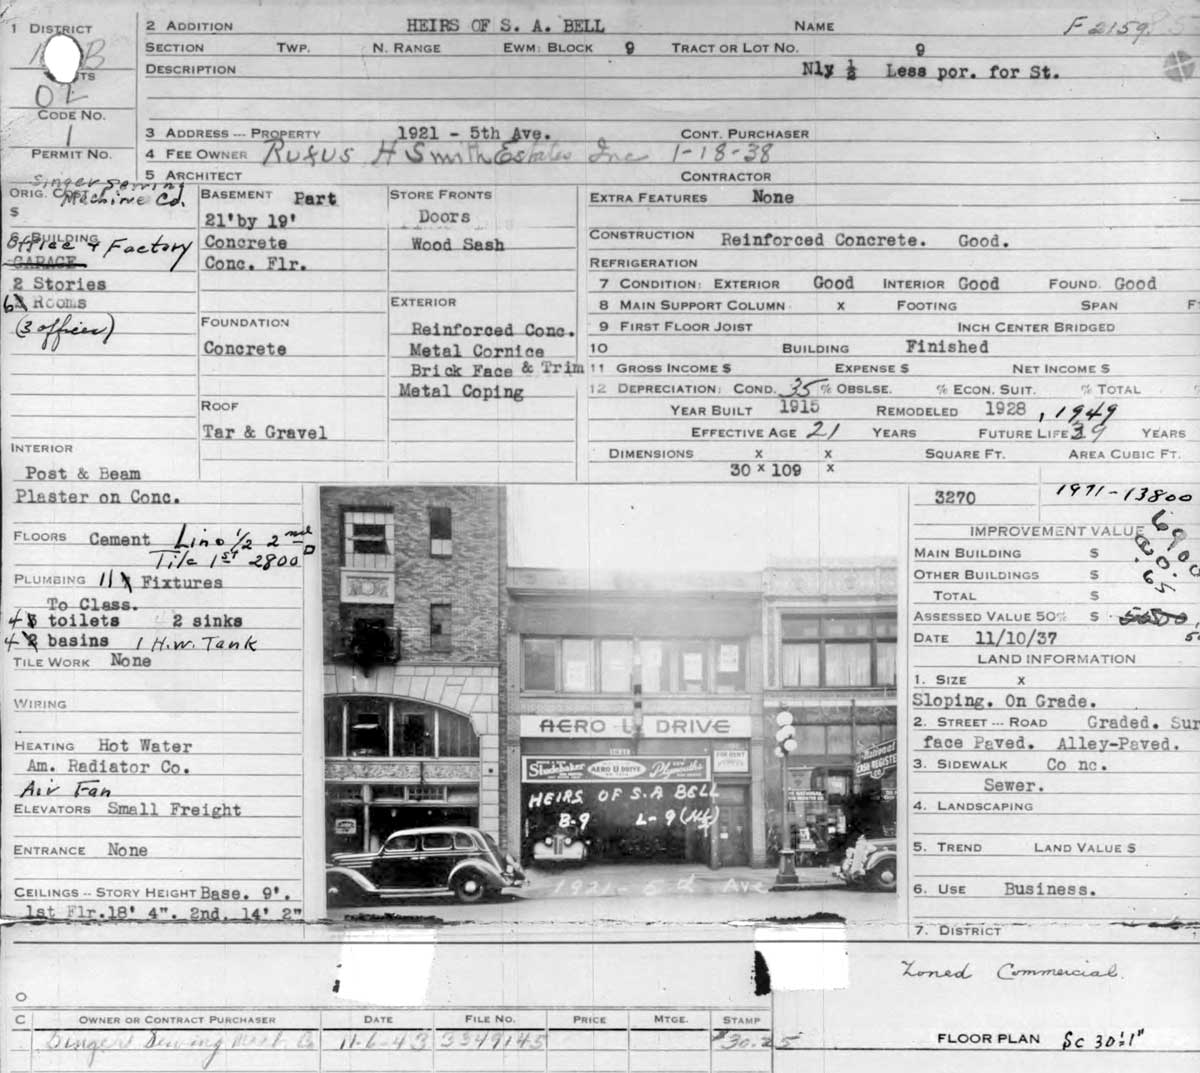 1 DISTRICT
2 ADDITION HEIRS OF S. A. BELL NAME F 2159
SECTION TWP. N. RANGE EWM: BLOCK 9 TRACT OR LOT NO. 9
DESCRIPTION Nly ½ Less por. for St.
02
CODE NO.
1
PERMIT NO.
3 ADDRESS --- PROPERTY 1921 - 5th Ave. CONT. PURCHASER
4 FEE OWNER Rufus H Smith Estates Inc 1-18-38
5 ARCHITECT CONTRACTOR
Singer Sewing Machine Co.
ORIG. COST
$
6 BUILDING
Office & Factory
GARAGE
2 Stories
6 Rooms
(3 offices)
INTERIOR
Post & Beam
Plaster on Conc.
FLOORS Cement Lino ½ 2nd
Tile 1st 2800
PLUMBING 11 Fixtures
To Class.
4 toilets 2 sinks
4 basins 1 H.W. Tank
TILE WORK None
WIRING
HEATING Hot Water
Am. Radiator Co.
Air Fan
ELEVATORS Small Freight
ENTRANCE None
CEILINGS -- STORY HEIGHT Base. 9'.
1st Flr. 18' 4". 2nd. 14' 2"
BASEMENT Part
21' by 19'
Concrete
Conc. Flr.
FOUNDATION
Concrete
ROOF
Tar & Gravel
STORE FRONTS
Doors
Wood Sash
EXTERIOR
Reinforced Conc.
Metal Cornice
Brick Face & Trim
Metal Coping
EXTRA FEATURES None
CONSTRUCTION Reinforced Concrete. Good.
REFRIGERATION
7 CONDITION: EXTERIOR Good INTERIOR Good FOUND. Good
8 MAIN SUPPORT COLUMN x FOOTING SPAN F
9 FIRST FLOOR JOIST INCH CENTER BRIDGED
10 BUILDING Finished
11 GROSS INCOME $ EXPENSE $ NET INCOME $
12 DEPRECIATION: COND. 35 % OBSLSE. % ECON. SUIT. % TOTAL
YEAR BUILT 1915 REMODELED 1928, 1949
EFFECTIVE AGE 21 YEARS FUTURE LIFE 39 YEARS
DIMENSIONS x x SQUARE FT. AREA CUBIC FT.
30 x 109 x
3270 1971-13800
IMPROVEMENT VALUE 6900
MAIN BUILDING $
OTHER BUILDINGS $ .65
TOTAL $
ASSESSED VALUE 50% $
DATE 11/10/37
LAND INFORMATION
1. SIZE x
Sloping. On Grade.
2. STREET --- ROAD Graded. Sur
face Paved. Alley-Paved.
3. SIDEWALK Conc.
Sewer.
4. LANDSCAPING
5. TREND LAND VALUE $
6. USE Business.
7. DISTRICT
AERO U DRIVE
1921
Studebaker AERO U DRIVE Plymouths
FOR RENT
National
CASH REGISTER
CO.
HEIRS OF S.A BELL
B-9 L-9 (N½)
1921 - 5th Ave
Zoned Commercial.
O
C OWNER OR CONTRACT PURCHASER DATE FILE NO. PRICE MTGE. STAMP
Singer Sewing Mach Co 11-6-43 3349145 $30.25
FLOOR PLAN Sc 30'=1"